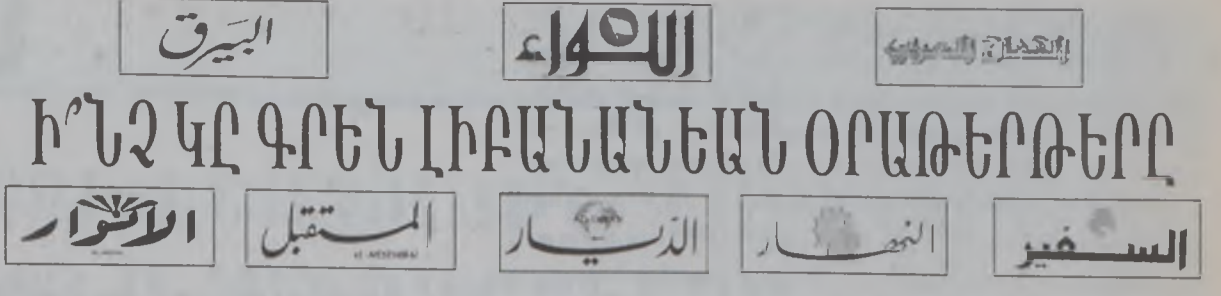 البيرق اللواء الكفاح العربي
Ի՞ՆՉ ԿԸ ԳՐԵՆ ԼԻԲԱՆԱՆԵԱՆ ՕՐԱԹԵՐԹԵՐԸ
الأنوار المستقبل الديار النهار السفير
AL-MUSTAQBAL